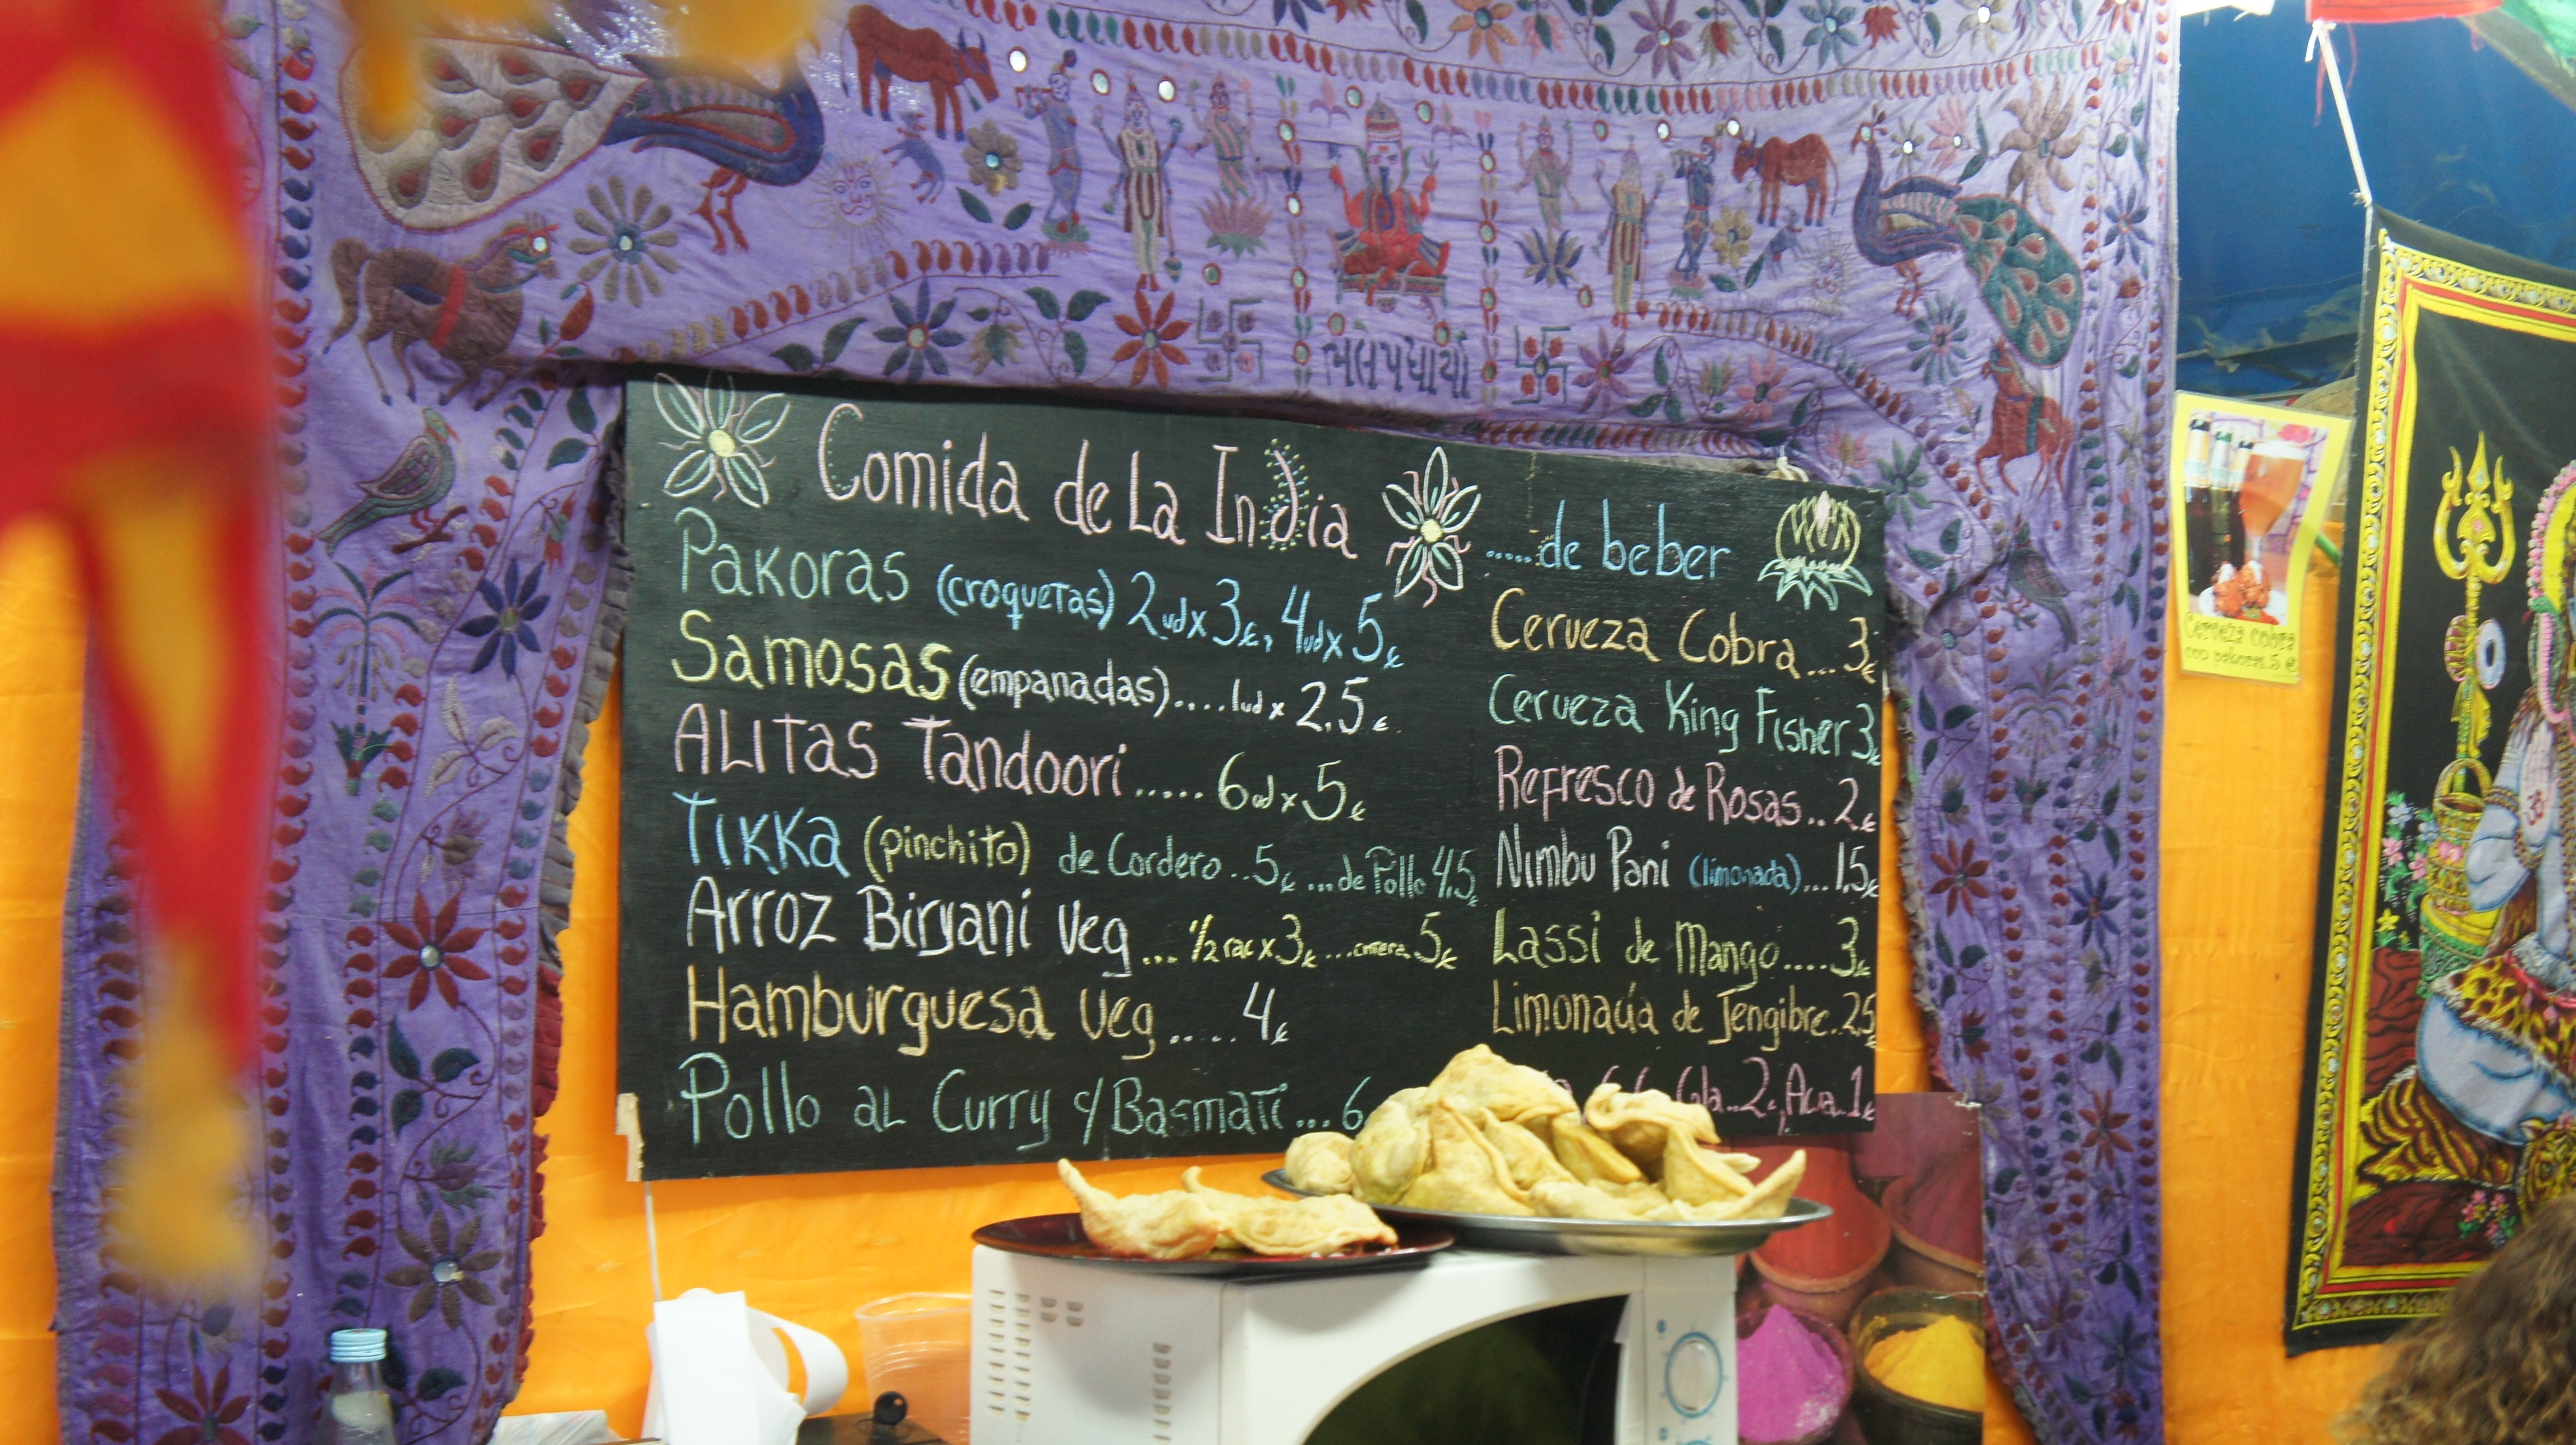 ભલે પધાર્યા
Comida de La India
Pakoras (croquetas) 2ud x 3€, 4ud x 5€
Samosas (empanadas)....1ud x 2.5€
ALITas Tandoori..... 6ud x 5€
TIKKa (pinchito) de Cordero..5€ ...de Pollo 4,5€
Arroz Biryani veg... 1/2 rac x 3€ ...entera. 5€
Hamburguesa veg..... 4€
Pollo aL Curry c/ Basmati... 6
.....de beber
Cerveza Cobra...3€
Cerveza King Fisher 3€
Refresco de Rosas..2€
Nimbu Pani (limonada)...1,5€
Lassi de Mango....3€
Limonada de Jengibre.2,5€
Cola..2€, Agua..1€
Cerveza cobra
con pakoras.5 €